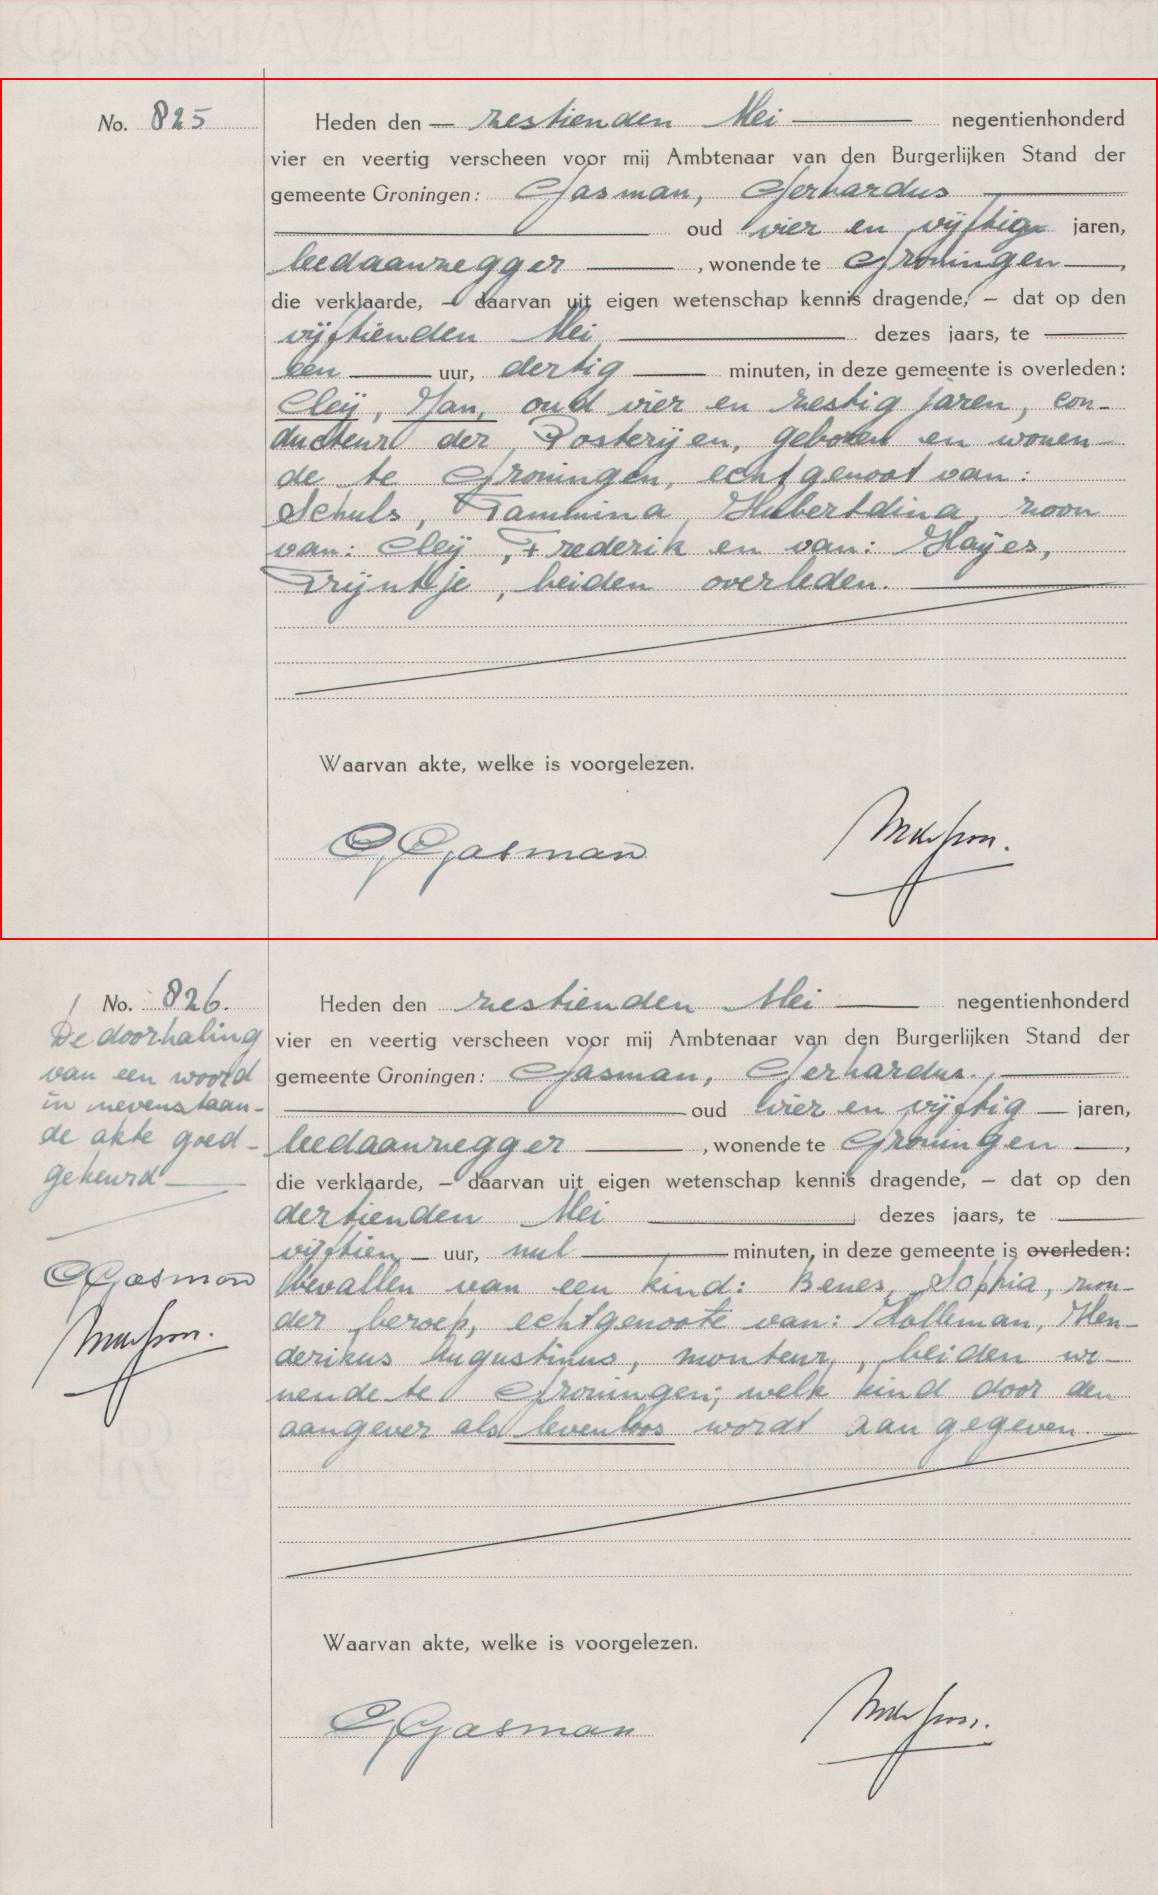 No. 825
Heden den — zestienden Mei — negentienhonderd
vier en veertig verscheen voor mij Ambtenaar van den Burgerlijken Stand der
gemeente Groningen: Gasman, Gerhardus
oud vier en vijftig jaren,
leedaanzegger —, wonende te Groningen —,
die verklaarde, – daarvan uit eigen wetenschap kennis dragende, – dat op den
vijftienden Mei — dezes jaars, te —
een — uur, dertig — minuten, in deze gemeente is overleden:
Cleij, Jan, oud vier en zestig jaren, con-
ducteur der Posterijen, geboren en wonen-
de te Groningen, echtgenoot van:
Schuls, Tammina Hubertdina, zoon
van: Cleij, Frederik en van: Hayes,
Trijntje, beiden overleden. —
Waarvan akte, welke is voorgelezen.
G Gasman
No. 826.
De doorhaling
van een woord
in nevenstaan-
de akte goed-
gekeurd —
G Gasman
Heden den zestienden Mei — negentienhonderd
vier en veertig verscheen voor mij Ambtenaar van den Burgerlijken Stand der
gemeente Groningen: Gasman, Gerhardus.,
— oud vier en vijftig — jaren,
leedaanzegger —, wonende te Groningen —,
die verklaarde, – daarvan uit eigen wetenschap kennis dragende, – dat op den
dertienden Mei — dezes jaars, te —
vijftien — uur, nul — minuten, in deze gemeente is overleden:
bevallen van een kind: Benes, Sophia, zon-
der beroep, echtgenoote van: Holleman, Hen-
derikus Augustinus, monteur, beiden wo-
nende te Groningen; welk kind door den
aangever als levenloos wordt aangegeven. —
Waarvan akte, welke is voorgelezen.
G Gasman